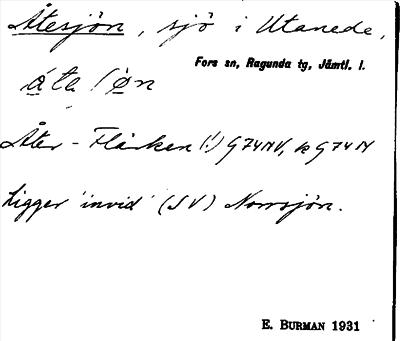 Åtesjön, sjö i Utanede,
Fors sn, Ragunda tg, Jämtl. l.
åta/øn
Åter-Flärken (!) G74NV, k G74N
Ligger 'invid' (SV) Norrsjön.
E. BURMAN 1931